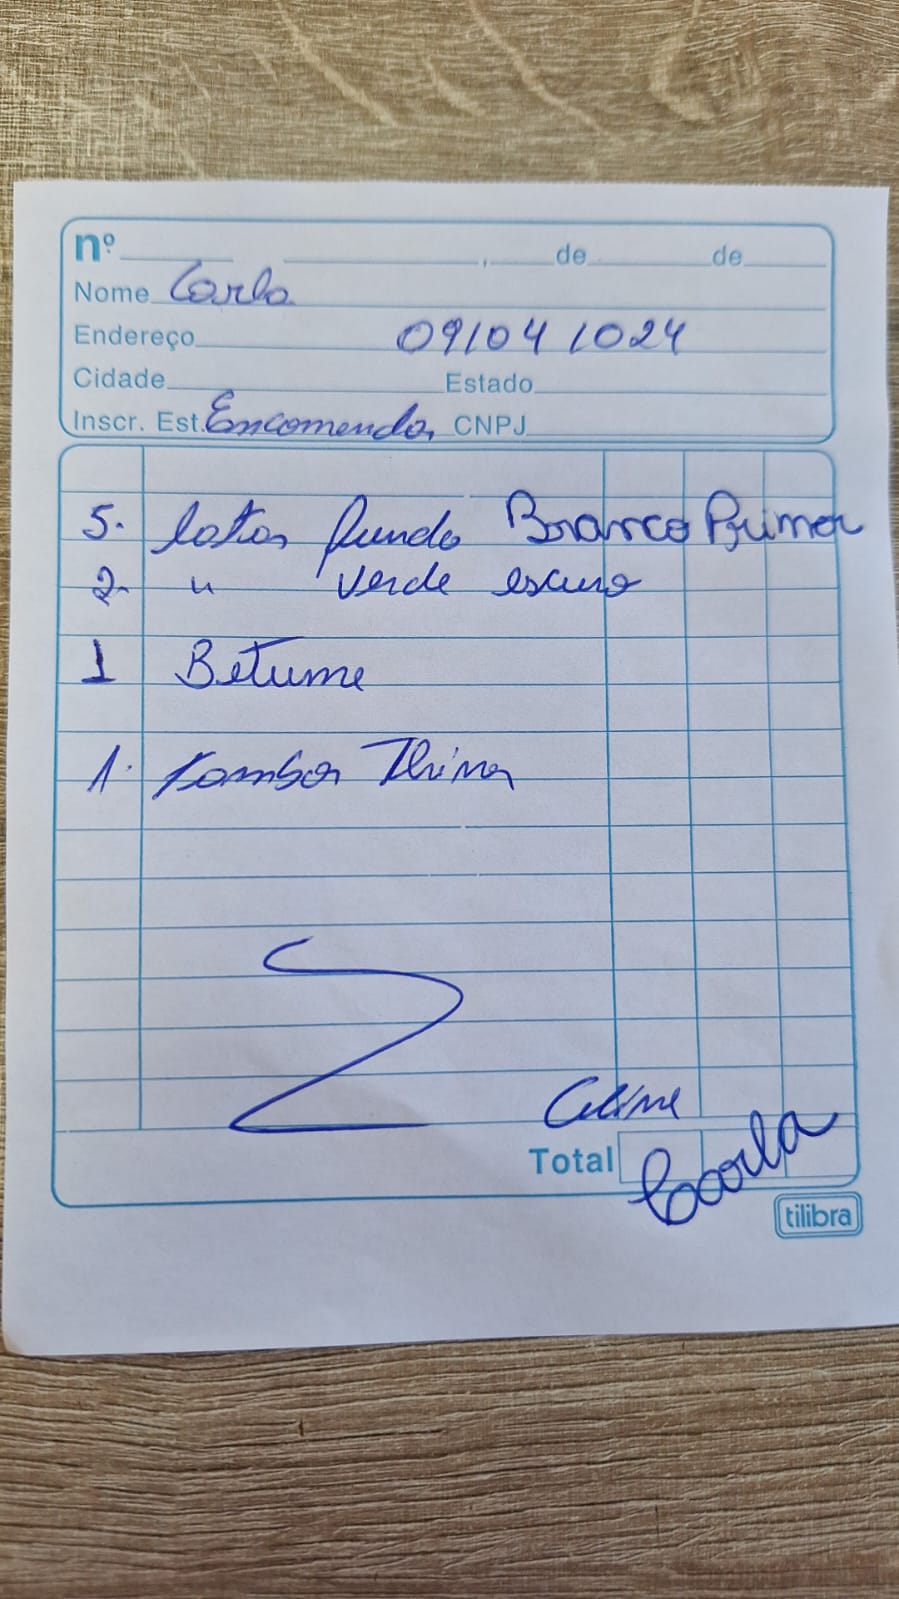 nº , de de
Nome Carla
Endereço 09/04/024
Cidade Estado
Inscr. Est. Encomenda CNPJ
5. latas fundo Branco Primer
2. " verde escuro
1 Betume
1. Tambor Thiner
Celine
Total Carla
tilibra